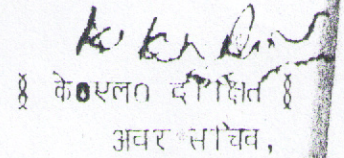 § के०एल० दीक्षित §
अवर सचिव,